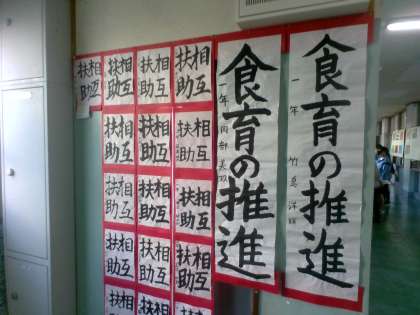 食育の推進
一年 竹島
食育の推進
一年 岡部美
相互
扶助
相互
扶助
相互
扶助
相互
扶助
相互
扶助
相互
扶助
相互
扶助
相互
扶助
相互
扶助
相互
扶助
相互
扶助
相互
扶助
相互
扶助
相
扶
相
扶